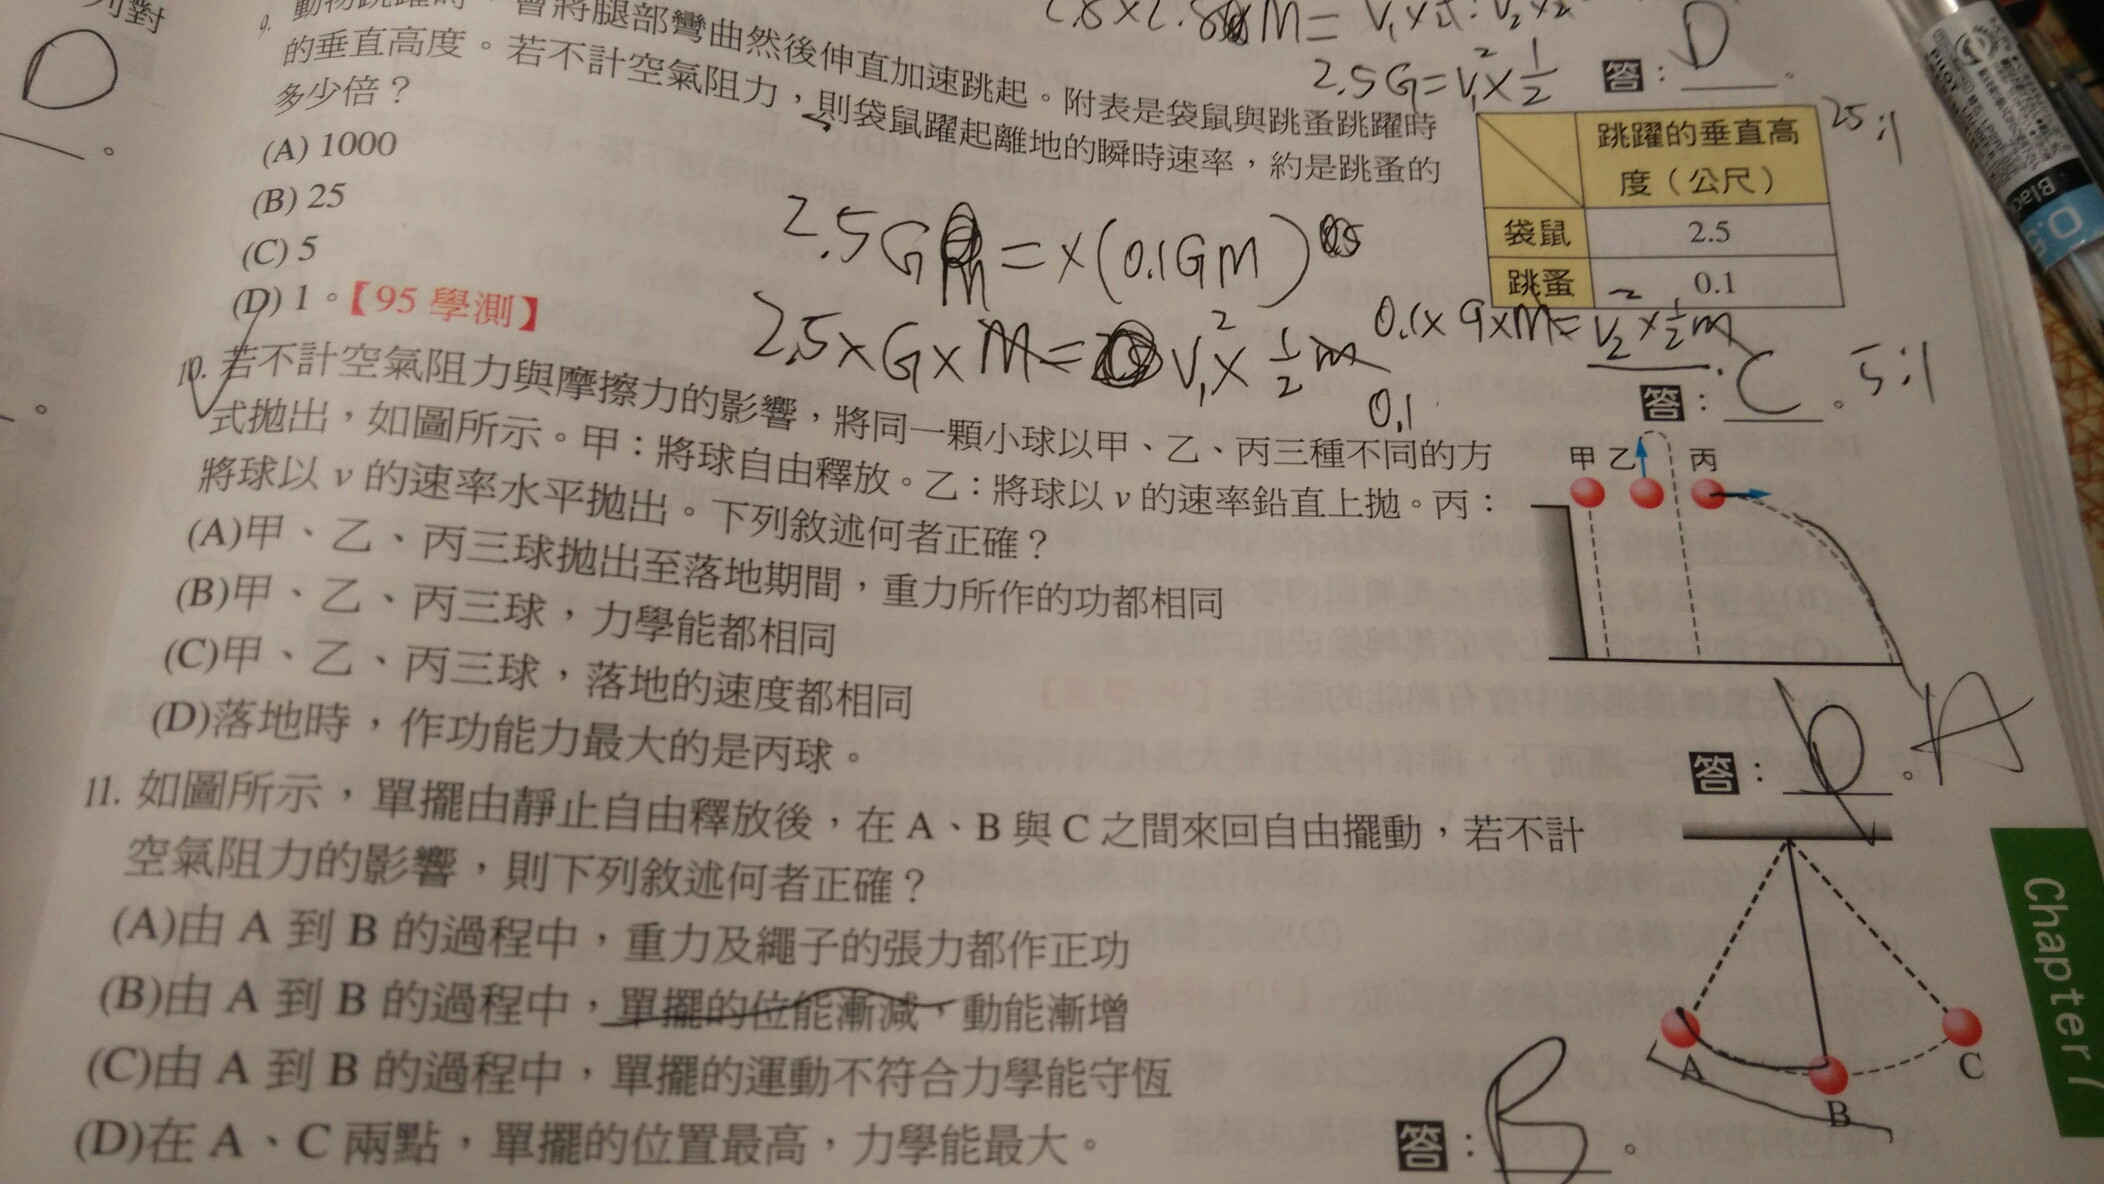 列對
D
。
9. 動物跳躍時，會將腿部彎曲然後伸直加速跳起。附表是袋鼠與跳蚤跳躍時
的垂直高度。若不計空氣阻力，則袋鼠躍起離地的瞬時速率，約是跳蚤的
多少倍？
(A) 1000
(B) 25
(C) 5
(D) 1。【95 學測】
2.5G=V₁²×1/2
答：D。
25:1
跳躍的垂直高
度（公尺）
袋鼠 2.5
跳蚤 0.1
2.5G m = ×(0.1GM)
2.5×G×M= V₁²×1/2m
0.1×9×M=V₂²×1/2m
0.1
答：C。
5:1
10. 若不計空氣阻力與摩擦力的影響，將同一顆小球以甲、乙、丙三種不同的方
式拋出，如圖所示。甲：將球自由釋放。乙：將球以 v 的速率鉛直上拋。丙：
將球以 v 的速率水平拋出。下列敘述何者正確？
(A)甲、乙、丙三球拋出至落地期間，重力所作的功都相同
(B)甲、乙、丙三球，力學能都相同
(C)甲、乙、丙三球，落地的速度都相同
(D)落地時，作功能力最大的是丙球。
甲 乙 丙
答：D。A
11. 如圖所示，單擺由靜止自由釋放後，在 A、B 與 C 之間來回自由擺動，若不計
空氣阻力的影響，則下列敘述何者正確？
(A)由 A 到 B 的過程中，重力及繩子的張力都作正功
(B)由 A 到 B 的過程中，單擺的位能漸減，動能漸增
(C)由 A 到 B 的過程中，單擺的運動不符合力學能守恆
(D)在 A、C 兩點，單擺的位置最高，力學能最大。
A
B
C
答：B。
Chapter 7
PILOT
0.5